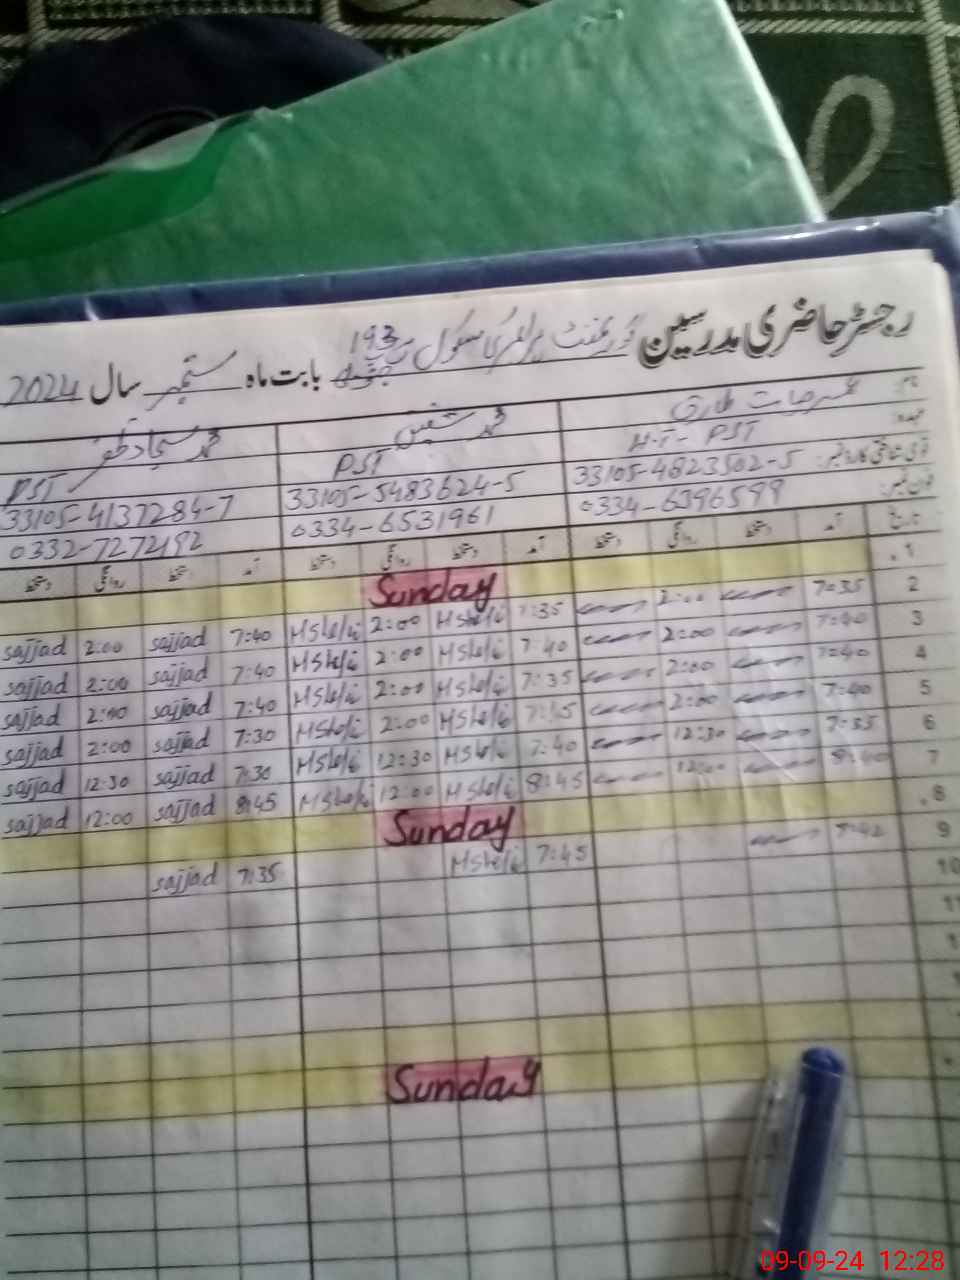 رجسٹر حاضری مدرسین گورنمنٹ پرائمری سکول 193 بابت ماہ ستمبر سال 2024
نام طارق محمد شفیق محمد سجاد ظفر
عہدہ H.T- PST PST PST
33105-4823502-5 33105-5483624-5 33105-4137284-7
فون نمبر: 0334-6396599 0334-6531961 0332-7272192
تاریخ آمد دستخط روانگی دستخط آمد دستخط روانگی دستخط آمد دستخط روانگی دستخط
1 Sunday
2 7:35 2:00 7:35 MShafi 2:00 MShafi 7:40 sajjad 2:00 sajjad
3 7:40 2:00 7:40 MShafi 2:00 MShafi 7:40 sajjad 2:00 sajjad
4 7:40 2:00 7:35 MShafi 2:00 MShafi 7:40 sajjad 2:00 sajjad
5 7:40 2:00 MShafi 2:00 MShafi 7:30 sajjad 2:00 sajjad
6 7:35 12:30 7:40 MShafi 12:30 MShafi 7:30 sajjad 12:30 sajjad
7 8:40 12:00 8:45 MShafi 12:00 MShafi 8:45 sajjad 12:00 sajjad
8 Sunday
9 7:45 MShafi 7:35 sajjad
10
11
Sunday
09-09-24 12:28